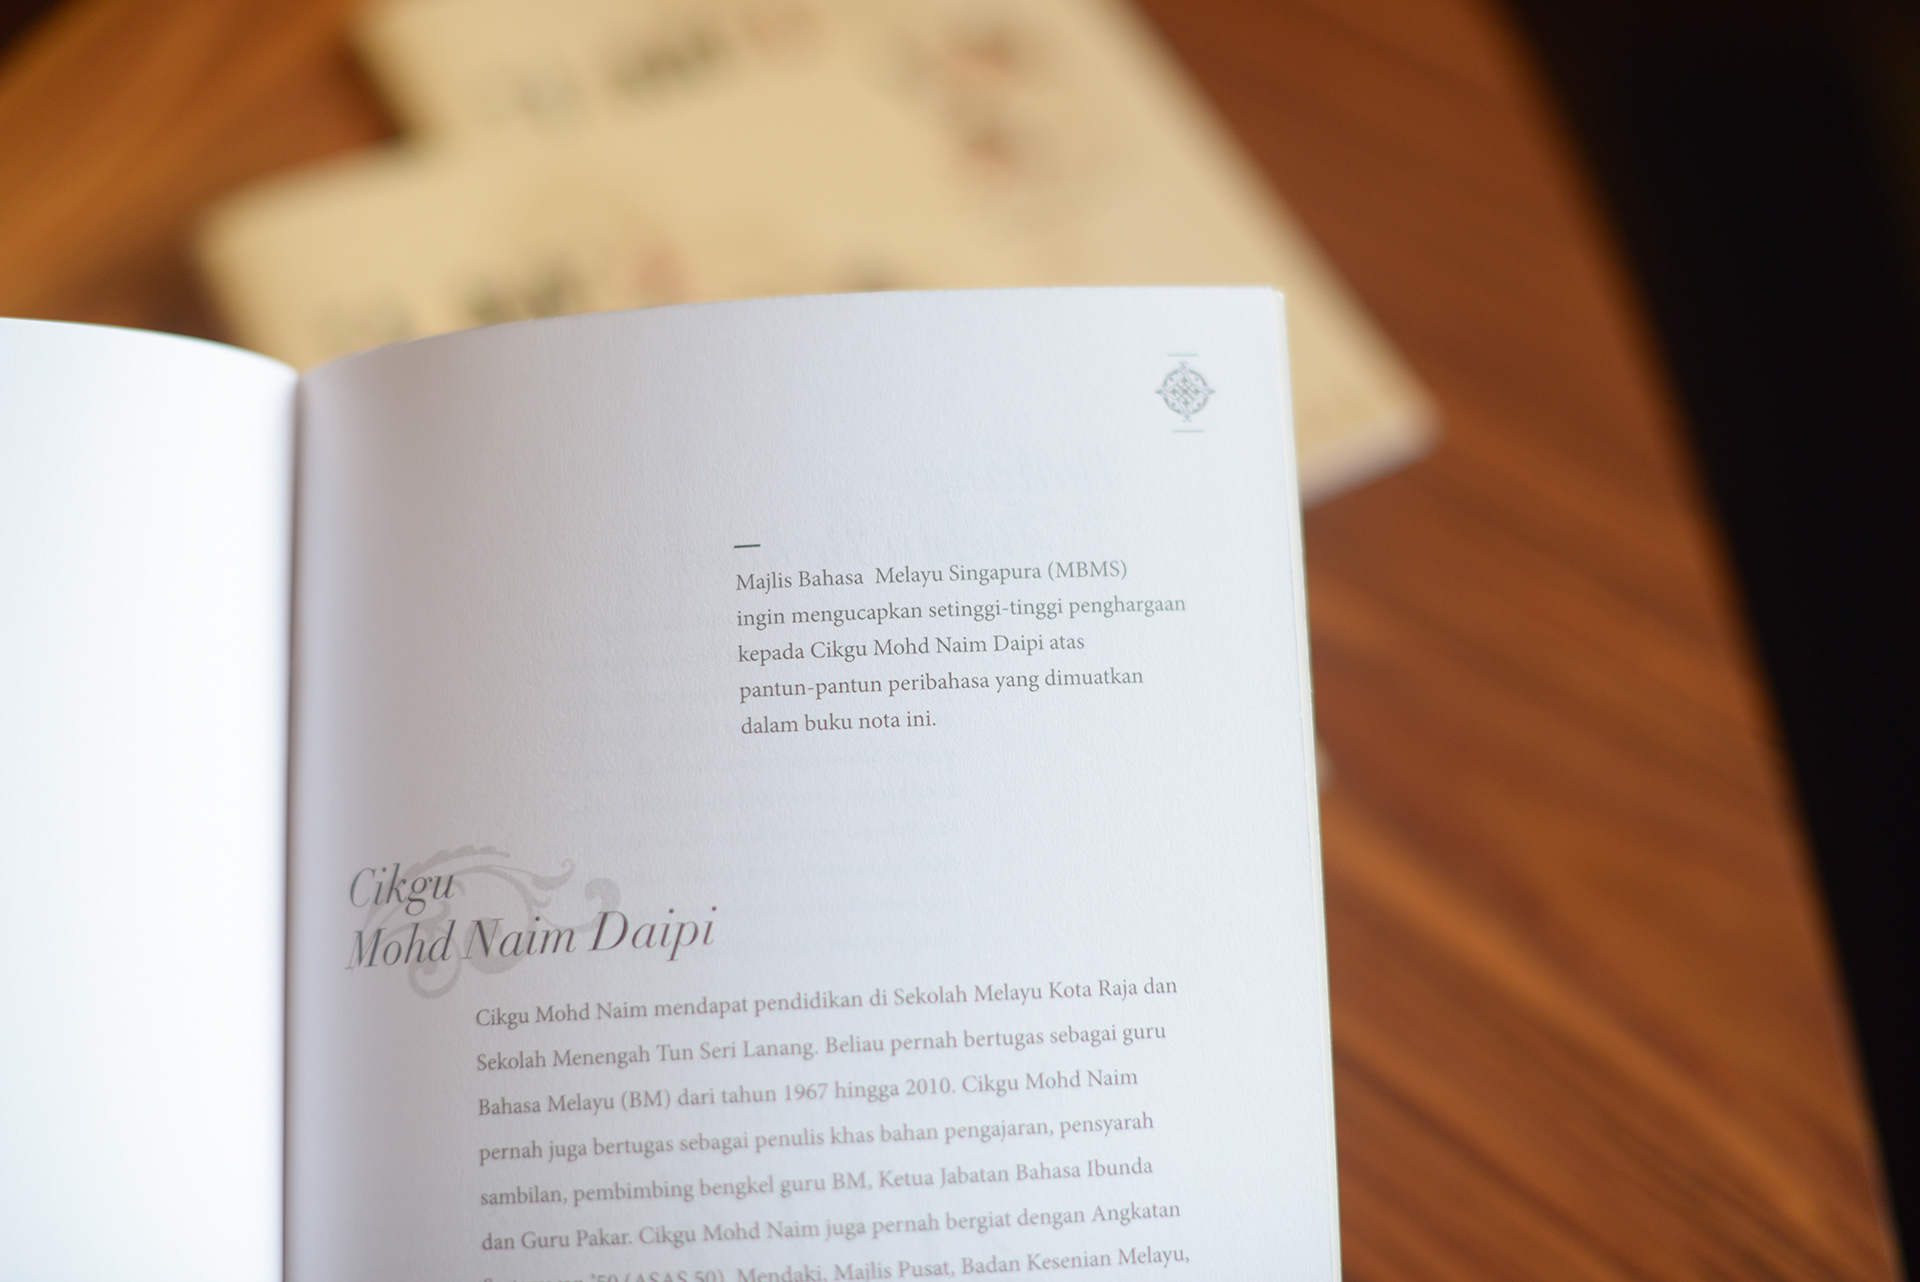 Majlis Bahasa Melayu Singapura (MBMS)
ingin mengucapkan setinggi-tinggi penghargaan
kepada Cikgu Mohd Naim Daipi atas
pantun-pantun peribahasa yang dimuatkan
dalam buku nota ini.
Cikgu
Mohd Naim Daipi
Cikgu Mohd Naim mendapat pendidikan di Sekolah Melayu Kota Raja dan
Sekolah Menengah Tun Seri Lanang. Beliau pernah bertugas sebagai guru
Bahasa Melayu (BM) dari tahun 1967 hingga 2010. Cikgu Mohd Naim
pernah juga bertugas sebagai penulis khas bahan pengajaran, pensyarah
sambilan, pembimbing bengkel guru BM, Ketua Jabatan Bahasa Ibunda
dan Guru Pakar. Cikgu Mohd Naim juga pernah bergiat dengan Angkatan
'50 (ASAS 50), Mendaki, Majlis Pusat, Badan Kesenian Melayu,